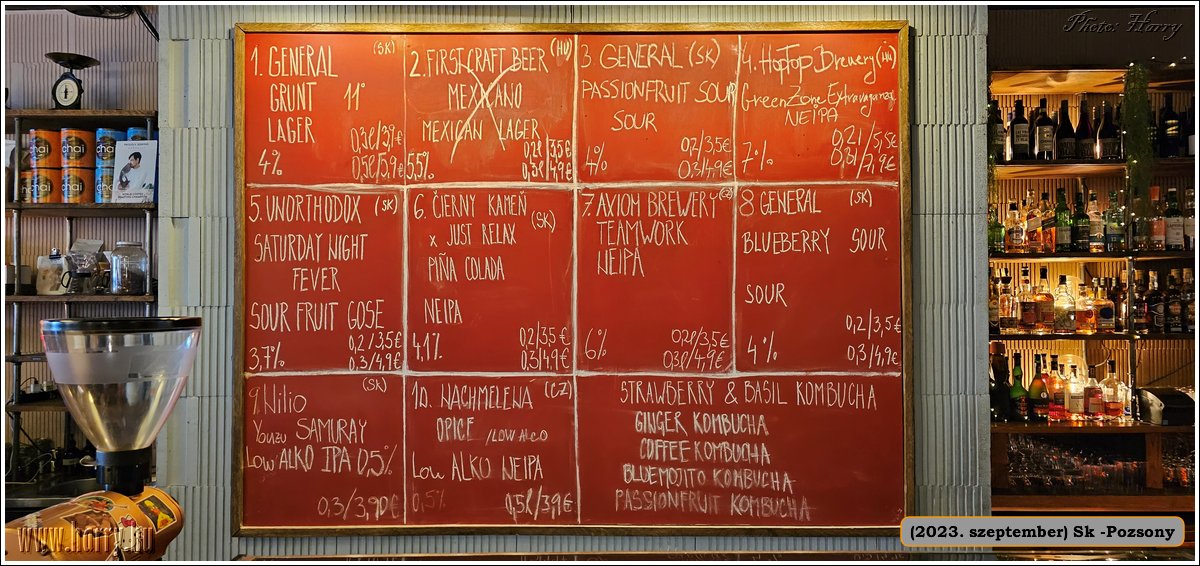 Photo: Harry
1. GENERAL (SK)
GRUNT 11°
LAGER
0,3l/3,9€
4% 0,5l/5,9€
2. FIRSTCRAFT BEER (HU)
MEXICANO
MEXICAN LAGER
0,2l/3,5€
5,5% 0,3l/4,9€
3. GENERAL (SK)
PASSIONFRUIT SOUR
SOUR
0,2/3,5€
4% 0,3/4,9€
4. HopTop Brewery (HU)
GreenZone Extravaganza
NEIPA
0,2l/5,5€
7% 0,3l/7,9€
5. UNORTHODOX (SK)
SATURDAY NIGHT
FEVER
SOUR FRUIT GOSE
0,2/3,5€
3,7% 0,3/4,9€
6. ČIERNY KAMEŇ
x JUST RELAX (SK)
PIÑA COLADA
NEIPA
0,2/3,5€
4,1% 0,3/4,9€
7. AXIOM BREWERY (CZ)
TEAMWORK
NEIPA
0,2l/3,5€
6% 0,3l/4,9€
8 GENERAL (SK)
BLUEBERRY SOUR
SOUR
0,2/3,5€
4% 0,3/4,9€
9. Nilio (SK)
Yuzu SAMURAY
Low ALKO IPA 0,5%
0,3/3,90€
10. NACHMELENÁ (CZ)
OPICE /LOW ALCO
Low ALKO NEIPA
0,5% 0,5l/3,9€
STRAWBERRY & BASIL KOMBUCHA
GINGER KOMBUCHA
COFFEE KOMBUCHA
BLUEMOJITO KOMBUCHA
PASSIONFRUIT KOMBUCHA
chai chai
chai chai
www.harry.hu
(2023. szeptember) Sk -Pozsony